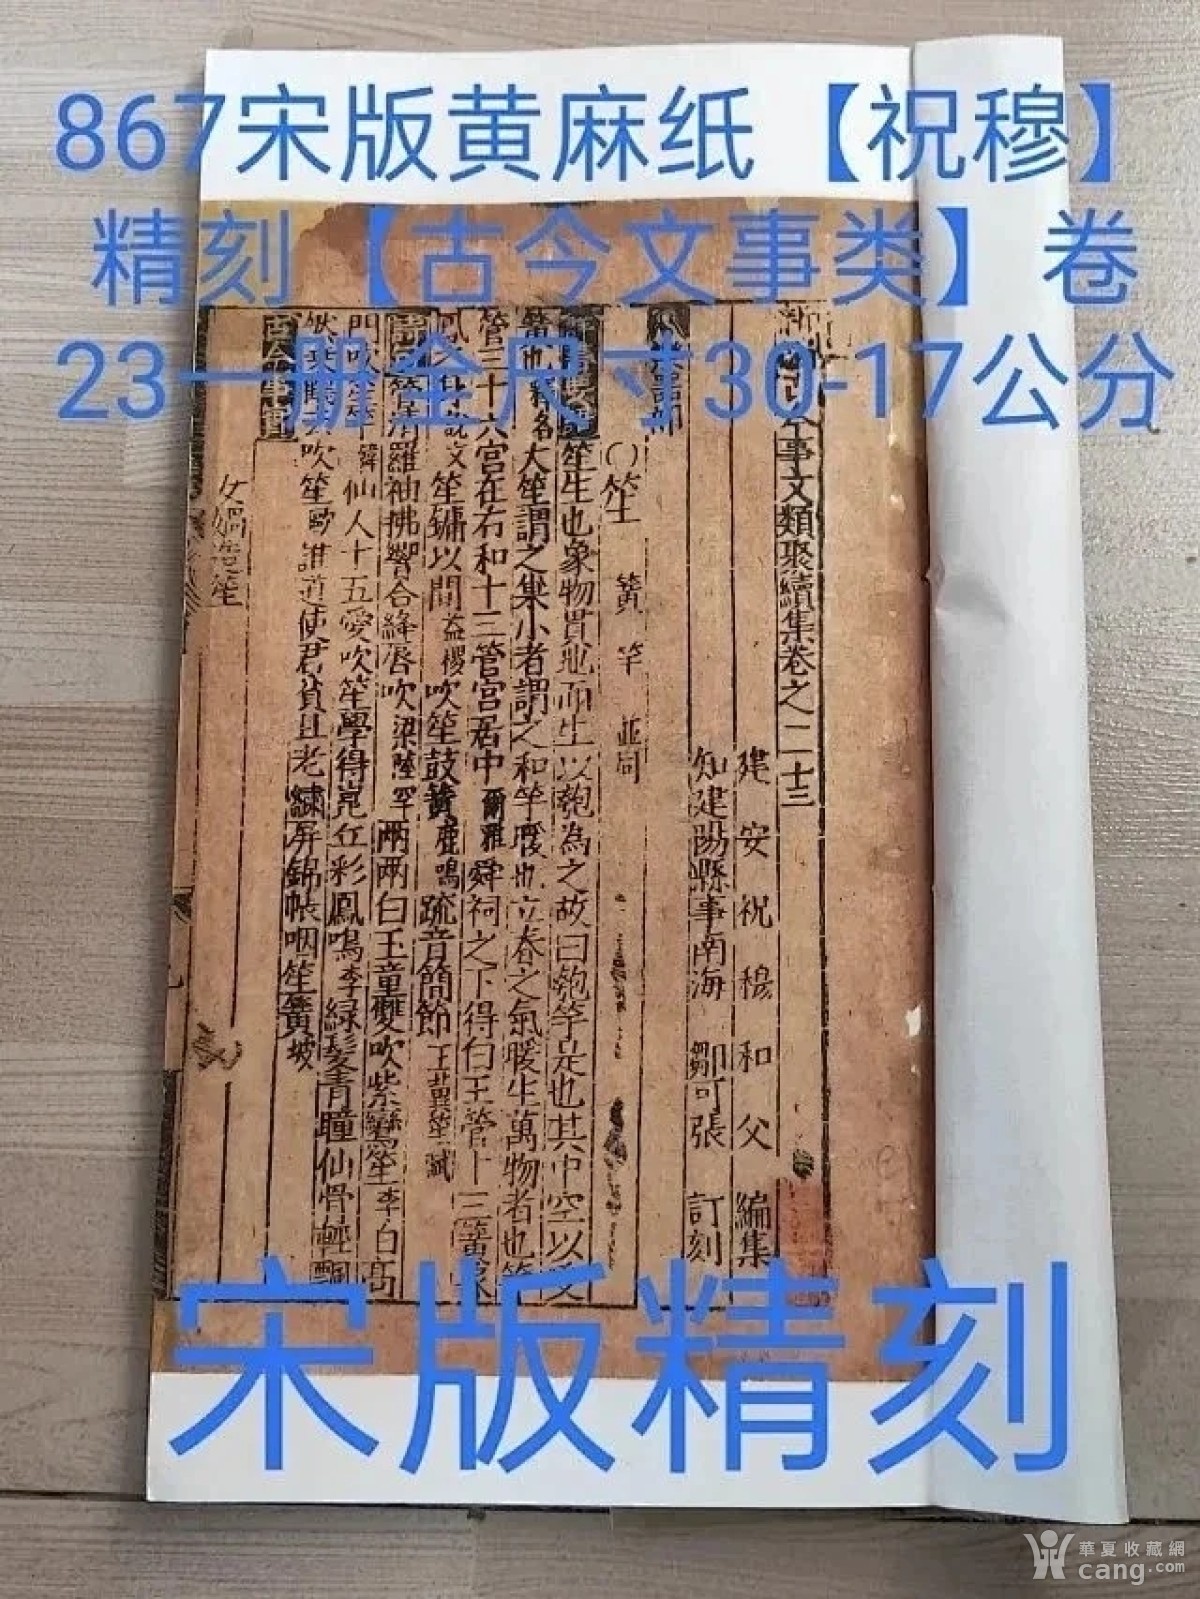 867宋版黄麻纸【祝穆】
精刻【古今文事类】卷
23一册全尺寸30-17公分
今事文類聚續集卷之二十三
建安祝穆和父編集
知建陽縣事南海鄒可張訂刻
〇笙簧竽並同
笙生也象物貫地而生以匏為之故曰匏竽是也其中空以受
簧也釋名大笙謂之巢小者謂之和竽暖也立春之氣暖生萬物者也
管三十六宮在右和十三管宮居中爾雅舜祠之下得白玉管十三簧象
說文笙鏞以間益稷吹笙鼓簧鹿鳴疏音簡節王蕢笙賦
羅袖拂響合絳唇吹梁陸罕兩兩白玉童雙吹紫鸞笙李白高
仙人十五愛吹笙學得崑丘彩鳳鳴李綠髮青瞳仙骨輕飄
吹笙歐誰道使君貧且老繡屏錦帳咽笙簧坡
古今事實
女媧笙
宋版精刻
華夏收藏網
cang.com